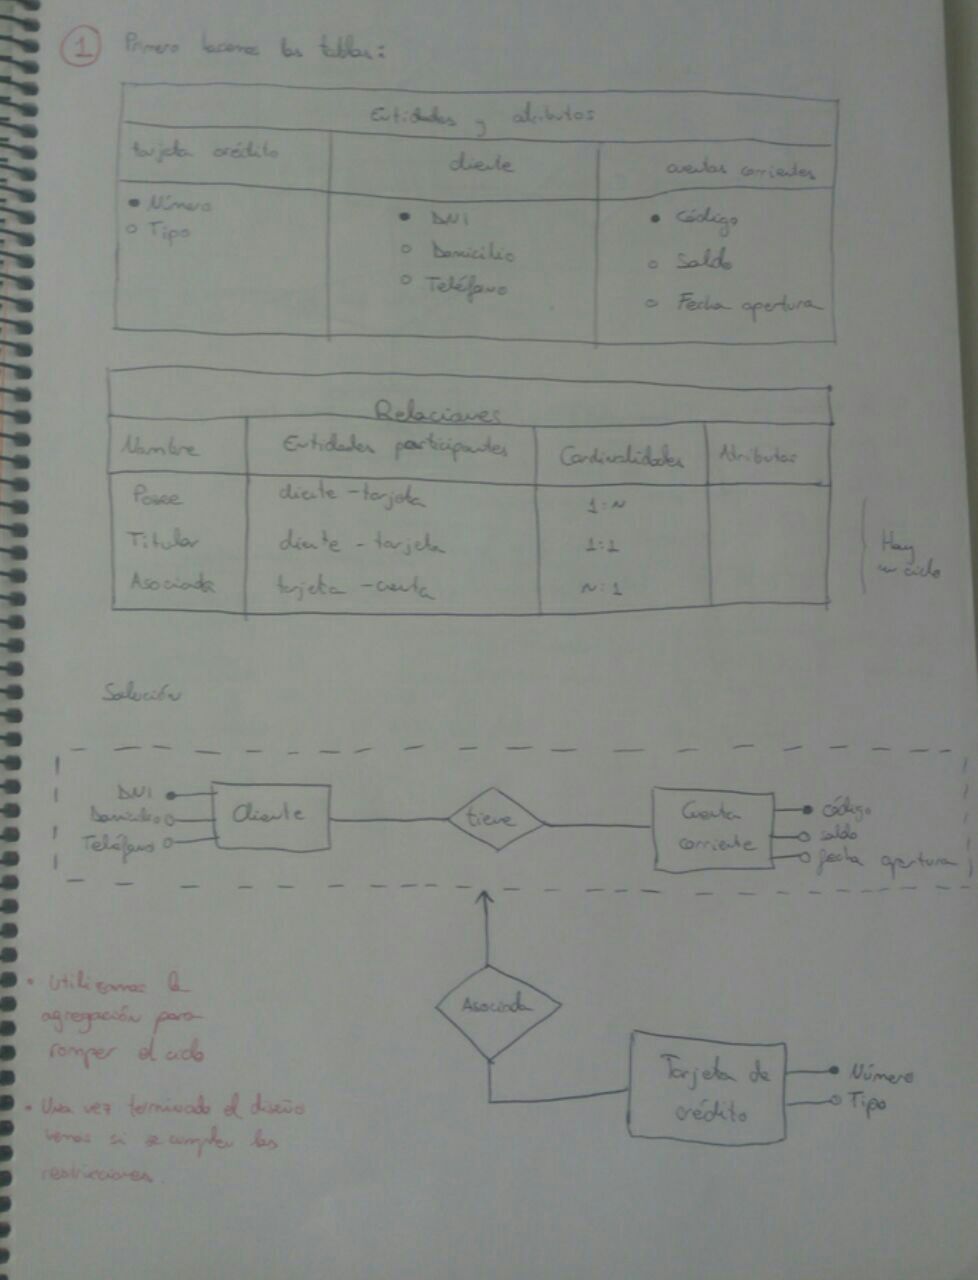 1 Primero hacemos las tablas:
Entidades y atributos
tarjeta crédito cliente cuentas corrientes
Número DNI Código
Tipo Domicilio Saldo
Teléfono Fecha apertura
Relaciones
Nombre Entidades participantes Cardinalidades Atributos
Posee cliente - tarjeta 1:N
Titular cliente - tarjeta 1:1
Asociada tarjeta - cuenta N:1
Hay
un ciclo
Solución
DNI
Domicilio
Teléfono
Cliente
tiene
Cuenta
corriente
código
saldo
fecha apertura
Asociada
Tarjeta de
crédito
Número
Tipo
• Utilizamos la
agregación para
romper el ciclo
• Una vez terminado el diseño
vemos si se cumplen las
restricciones.